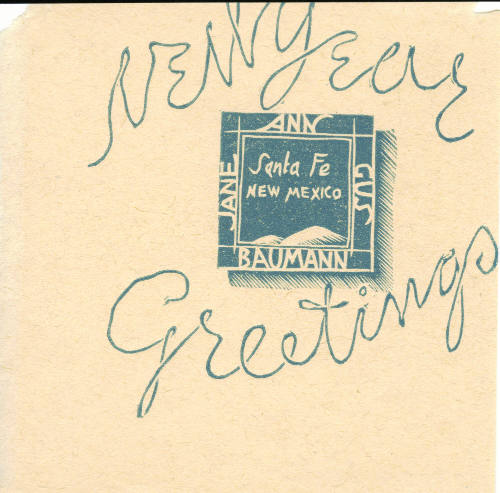 New Year
ANN
JANE
Santa Fe
NEW MEXICO
GUS
BAUMANN
Greetings